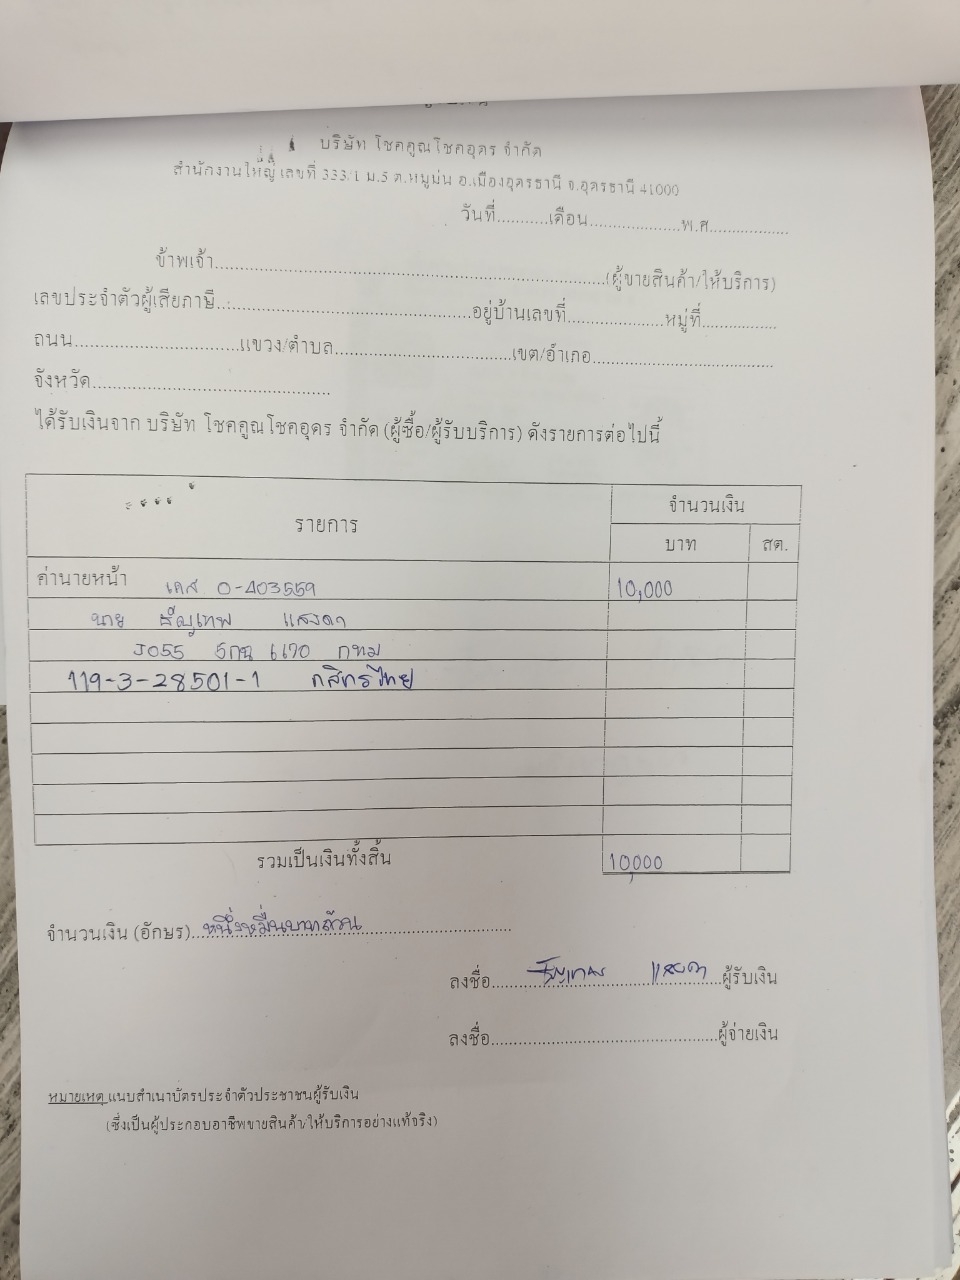 บริษัท โชคคูณโชคอุดร จำกัด
สำนักงานใหญ่ เลขที่ 333/1 ม.5 ต.หมูม่น อ.เมืองอุดรธานี จ.อุดรธานี 41000
วันที่...........เดือน...................พ.ศ.................
ข้าพเจ้า..................................................................(ผู้ขายสินค้า/ให้บริการ)
เลขประจำตัวผู้เสียภาษี..:..........................................อยู่บ้านเลขที่....................หมู่ที่...............
ถนน.................................แขวง/ตำบล....................................เขต/อำเภอ....................................
จังหวัด...............................................
ได้รับเงินจาก บริษัท โชคคูณโชคอุดร จำกัด (ผู้ซื้อ/ผู้รับบริการ) ดังรายการต่อไปนี้
รายการ จำนวนเงิน
บาท สต.
ค่านายหน้า เคส 0-403559 10,000
นาย ธัญเทพ แสงดา
กทม
119-3-28501-1 กสิกรไทย
รวมเป็นเงินทั้งสิ้น 10,000
จำนวนเงิน (อักษร)...หนึ่งหมื่นบาทถ้วน..............................
ลงชื่อ.......ธัญเทพ แสงดา...ผู้รับเงิน
ลงชื่อ..............................................ผู้จ่ายเงิน
หมายเหตุ แนบสำเนาบัตรประจำตัวประชาชนผู้รับเงิน
(ซึ่งเป็นผู้ประกอบอาชีพขายสินค้า/ให้บริการอย่างแท้จริง)